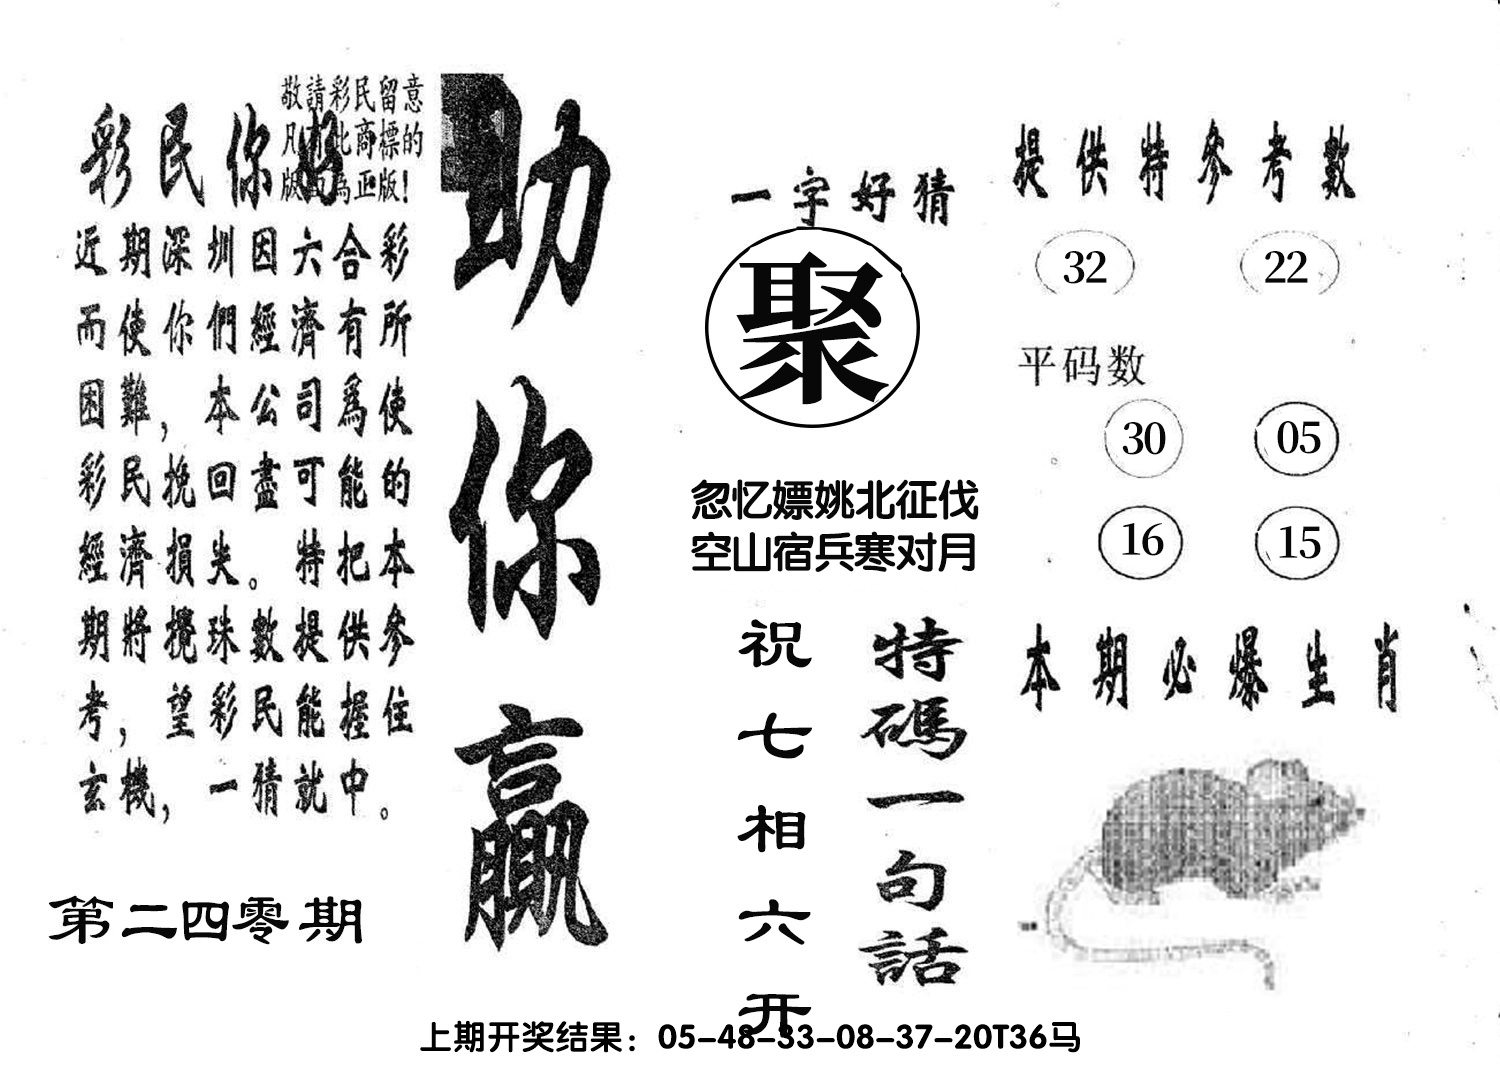 敬請彩民留意
凡有此商標的
版面為正版！
彩民你好
近期深圳因六合彩
而使你們經濟有所
困難，本公司爲使
彩民挽回盡可能的
經濟損失。特把本
期將攪珠數提供參
考，望彩民能握住
玄機，一猜就中。
第二四零期
助你贏
一字好猜
聚
忽忆嫖姚北征伐
空山宿兵寒对月
特碼一句話
祝七相六开
提供特參考數
32 22
平码数
30 05
16 15
本期必爆生肖
上期开奖结果：05-48-33-08-37-20T36马